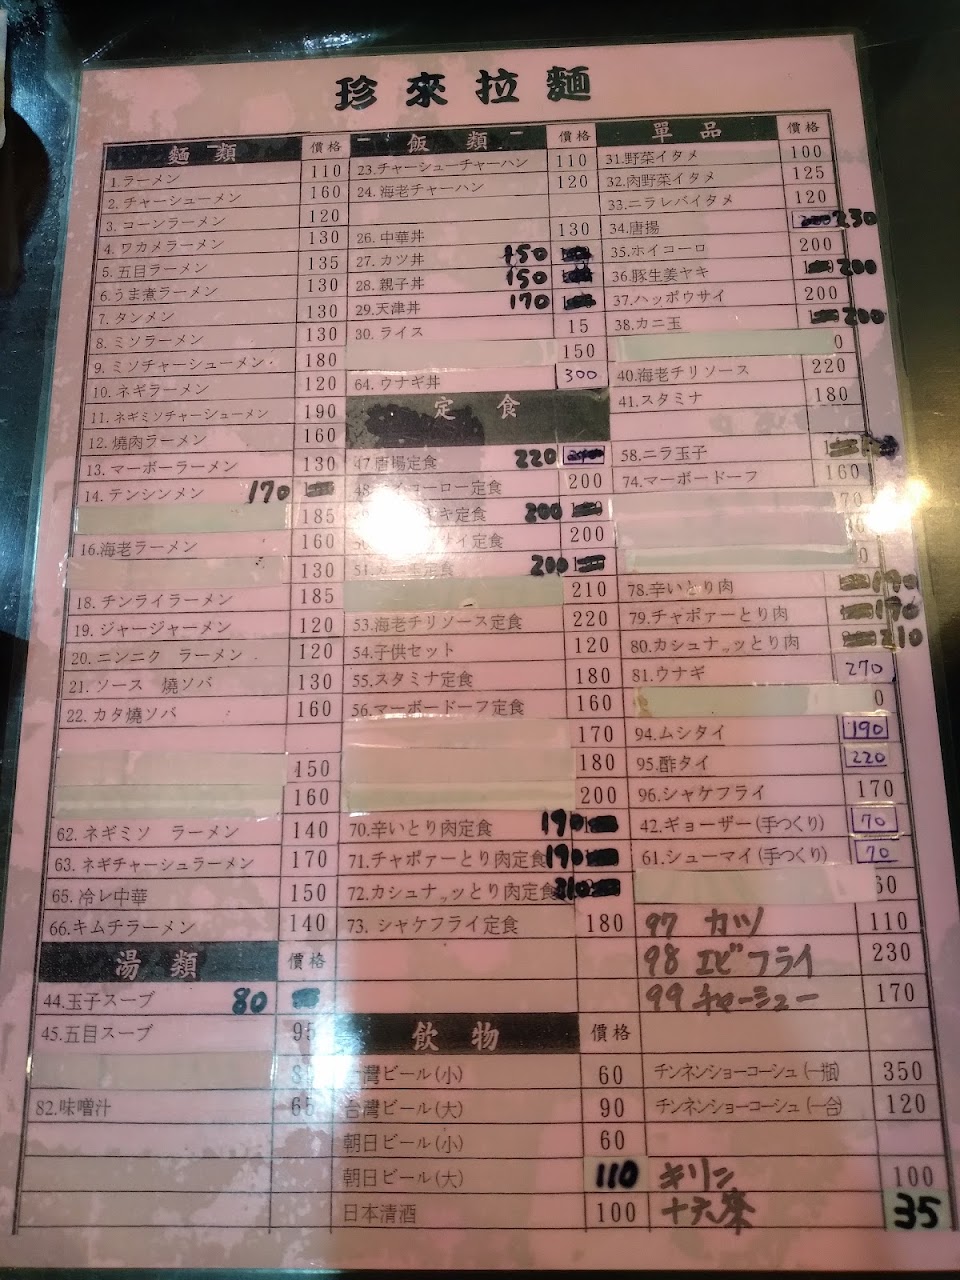 珍來拉麵
麵類 價格
1.ラーメン 110
2.チャーシューメン 160
3.コーンラーメン 120
4.ワカメラーメン 130
5.五目ラーメン 135
6.うま煮ラーメン 130
7.タンメン 130
8.ミソラーメン 130
9.ミソチャーシューメン 180
10.ネギラーメン 120
11.ネギミソチャーシューメン 190
12.燒肉ラーメン 160
13.マーボーラーメン 130
14.テンシンメン 170
185
16.海老ラーメン 160
130
18.チンライラーメン 185
19.ジャージャーメン 120
20.ニンニク ラーメン 120
21.ソース 燒ソバ 130
22.カタ燒ソバ 160
150
160
62.ネギミソ ラーメン 140
63.ネギチャーシュラーメン 170
65.冷レ中華 150
66.キムチラーメン 140
湯類 價格
44.玉子スープ 80
45.五目スープ 95
82.味噌汁 65
飯類 價格
23.チャーシューチャーハン 110
24.海老チャーハン 120
26.中華丼 130
27.カツ丼 150
28.親子丼 150
29.天津丼 170
30.ライス 15
150
64.ウナギ丼 300
定食
47.唐揚定食 220
コーロー定食 200
キ定食 200
サイ定食 200
51. 定食 200
210
53.海老チリソース定食 220
54.子供セット 120
55.スタミナ定食 180
56.マーボードーフ定食 160
170
180
200
70.辛いとり肉定食 190
71.チャボァーとり肉定食 190
72.カシュナッッとり肉定食 210
73.シャケフライ定食 180
飲物 價格
台灣ビール(小) 60
台灣ビール(大) 90
朝日ビール(小) 60
朝日ビール(大) 110
日本清酒 100
單品 價格
31.野菜イタメ 100
32.肉野菜イタメ 125
33.ニラレバイタメ 120
34.唐揚 230
35.ホイコーロ 200
36.豚生姜ヤキ 200
37.ハッポウサイ 200
38.カニ玉 200
0
40.海老チリソース 220
41.スタミナ 180
58.ニラ玉子
74.マーボードーフ 160
70
0
78.辛いとり肉 190
79.チャボァーとり肉 190
80.カシュナッッとり肉 210
81.ウナギ 270
0
94.ムシタイ 190
95.酢タイ 220
96.シャケフライ 170
42.ギョーザー(手つくり) 70
61.シューマイ(手つくり) 70
97 カツ 110
98 エビフライ 230
99 チャーシュー 170
チンネンショーコーシュ(一瓶) 350
チンネンショーコーシュ(一合) 120
キリン 100
十六茶 35